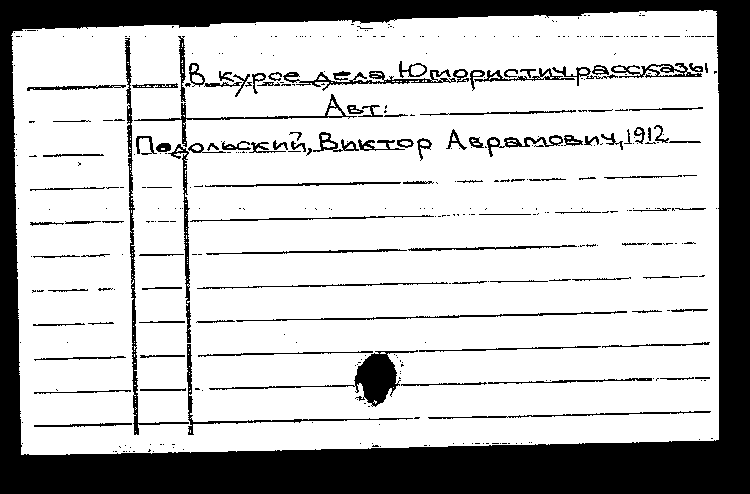 В курсе дела. Юмористич. рассказы.
Авт:
Подольский, Виктор Аврамович, 1912